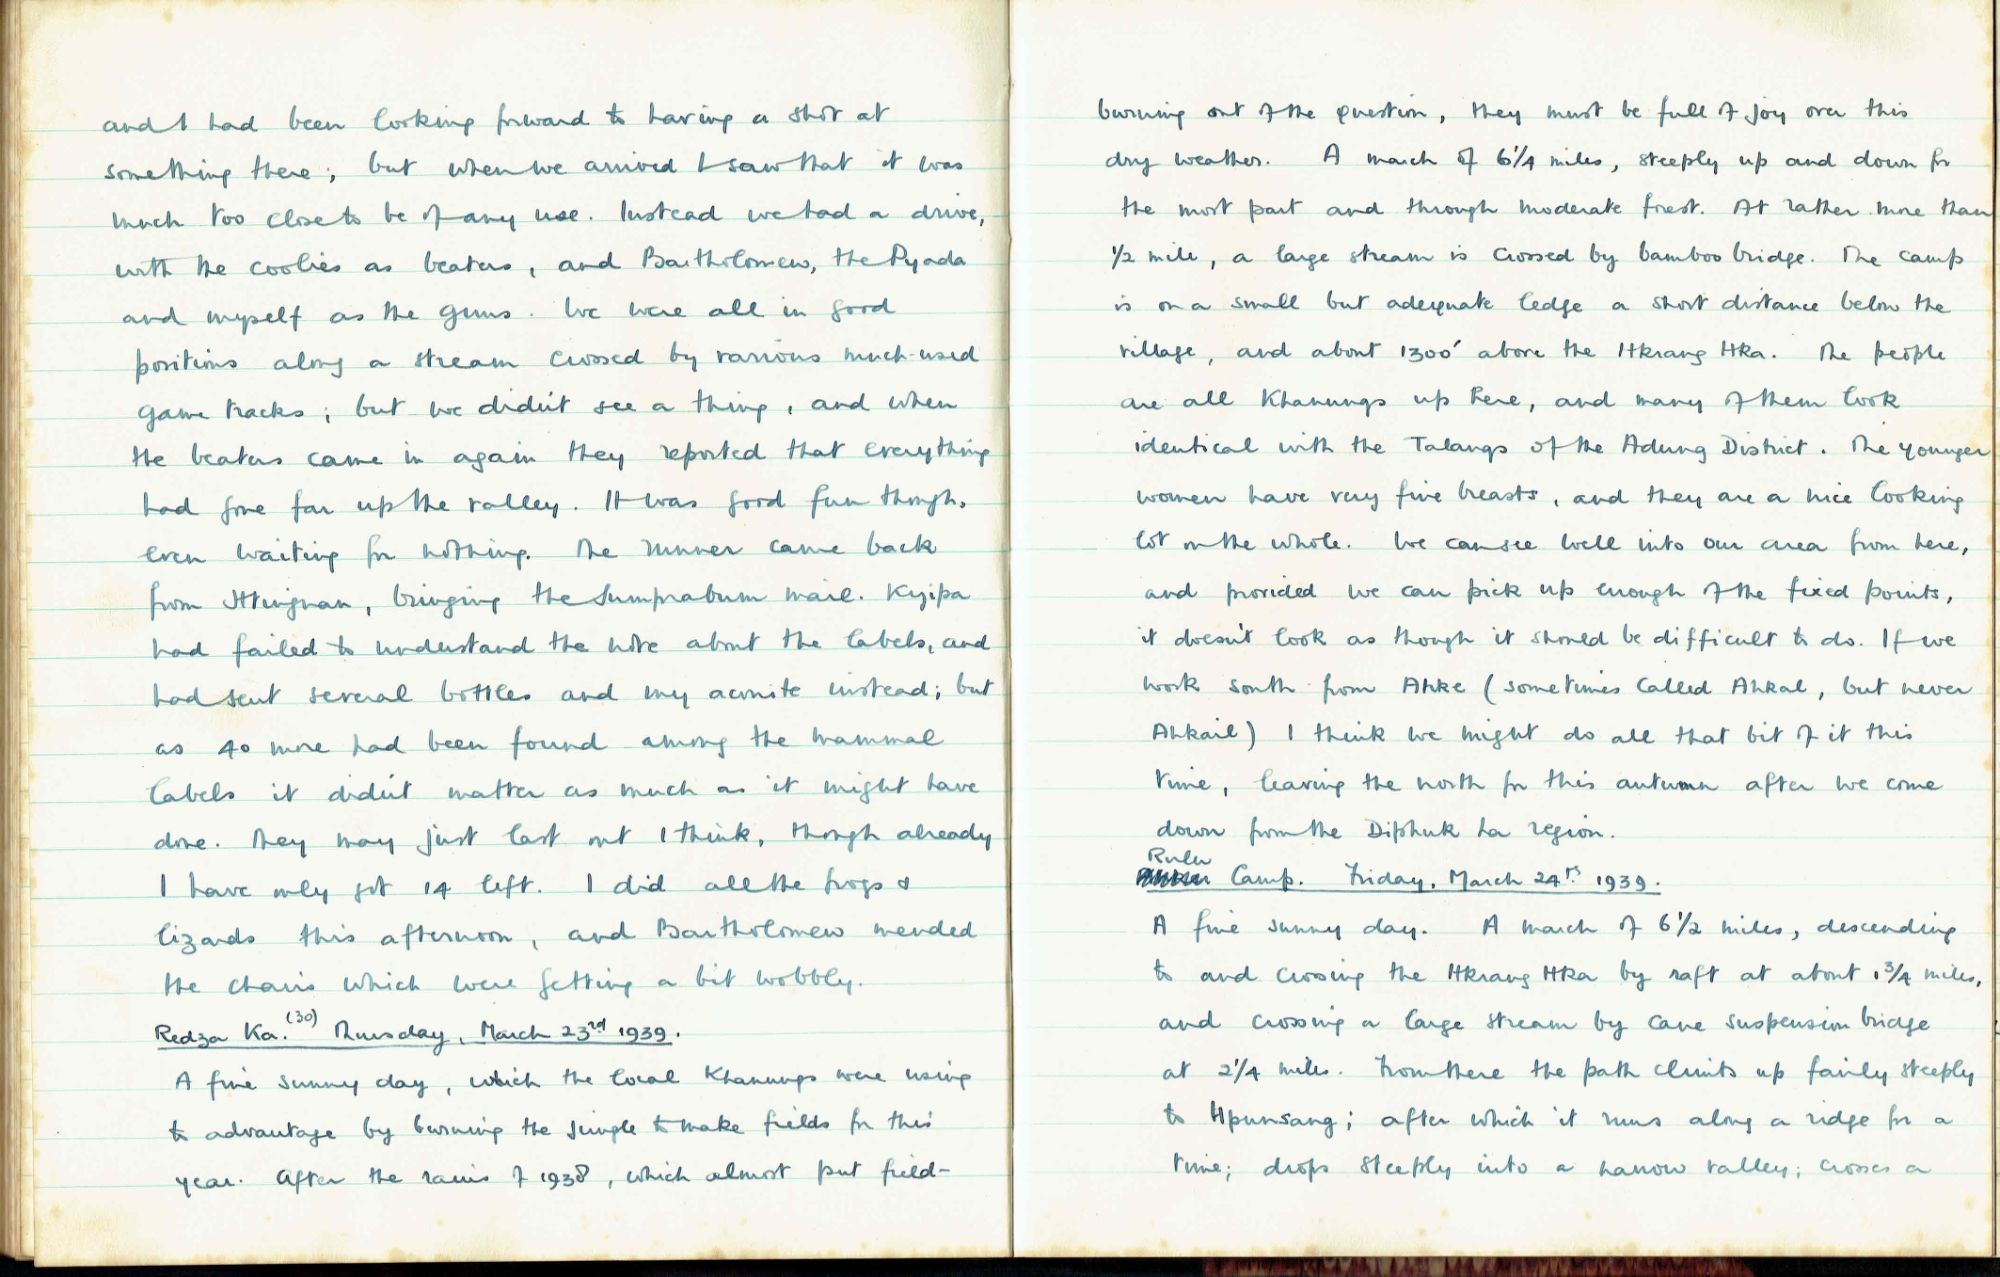 and I had been looking forward to having a shot at
something there; but when we arrived I saw that it was
much too close to be of any use. Instead we had a drive,
with the coolies as beaters, and Bartholomew, the Pyada
and myself as the guns. We were all in good
positions along a stream crossed by various much-used
game tracks; but we didn't see a thing, and when
the beaters came in again they reported that everything
had gone far up the valley. It was good fun though,
even waiting for nothing. The runner came back
from Htingnan, bringing the Sumprabum mail. Kyipa
had failed to understand the note about the labels, and
had sent several bottles and my aconite instead; but
as 40 more had been found among the mammal
labels it didn't matter as much as it might have
done. They may just last out I think, though already
I have only got 14 left. I did all the frogs &
lizards this afternoon, and Bartholomew mended
the chairs which were getting a bit wobbly.
Redza Ka. (30) Thursday, March 23rd 1939.
A fine sunny day, which the local Khanungs were using
to advantage by burning the jungle to make fields for this
year. After the rains of 1938, which almost put field-
burning out of the question, they must be full of joy over this
dry weather. A march of 6 1/4 miles, steeply up and down for
the most part and through moderate forest. At rather more than
1/2 mile, a large stream is crossed by bamboo bridge. The camp
is on a small but adequate ledge a short distance below the
village, and about 1300' above the Hkrang Hka. The people
are all Khanungs up here, and many of them look
identical with the Talangs of the Adung District. The younger
women have very fine breasts, and they are a nice looking
lot on the whole. We can see well into our area from here,
and provided we can pick up enough of the fixed points,
it doesn't look as though it should be difficult to do. If we
work south from Ahke (sometimes called Ahkal, but never
Ahkail) I think we might do all that bit of it this
time, leaving the north for this autumn after we come
down from the Diphuk La region.
Rulu
Camp. Friday, March 24th 1939.
A fine sunny day. A march of 6 1/2 miles, descending
to and crossing the Hkrang Hka by raft at about 1 3/4 miles,
and crossing a large stream by cane suspension bridge
at 2 1/4 miles. From there the path climbs up fairly steeply
to Hpunsang; after which it runs along a ridge for a
time; drops steeply into a narrow valley; crosses a